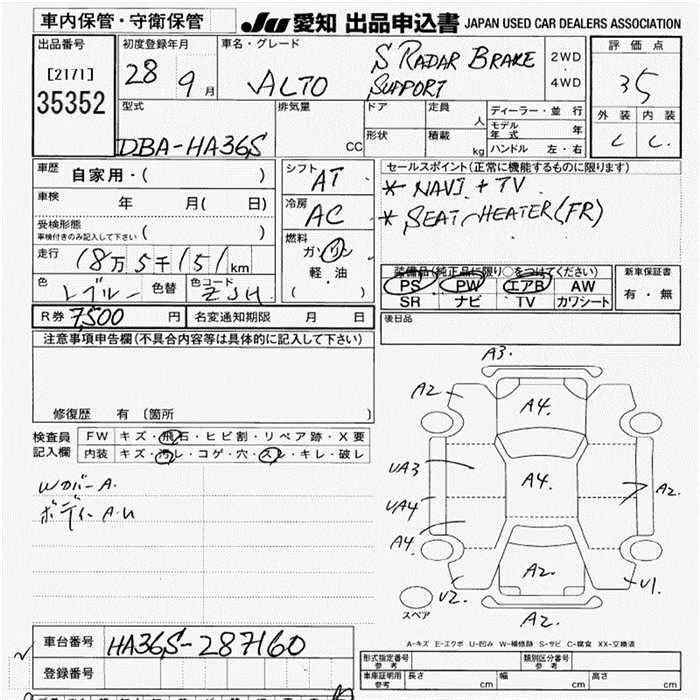 車内保管・守衛保管
JU 愛知 出品申込書 JAPAN USED CAR DEALERS ASSOCIATION
出品番号
[2171]
35352
初度登録年月
28 9月
車名・グレード
ALTO
S RADAR BRAKE
SUPPORT
2WD
・
4WD
評価点
35
外装 内装
C C.
型式
DBA-HA36S
排気量
CC
ドア
形状
定員
人
積載
kg
ディーラー・並行
モデル年式 年
ハンドル 左・右
車歴 自家用・( )
車検 年 月( 日)
受検形態
車検付きのみ記入して下さい ( )
走行 18万5千151km
色 レブルー 色替 色コード ZJH
シフト AT
冷房 AC
燃料
ガソリン
軽・油
( )
セールスポイント(正常に機能するものに限ります)
* NAVI + TV
* SEAT HEATER(FR)
装備品(純正品に限り〇をつけてください)
PS PW エアB AW
SR ナビ TV カワシート
新車保証書
有・無
R券 7,500円 名変通知期限 月 日
後日品
注意事項申告欄(不具合内容等は具体的に記入して下さい)
修復歴 有〔箇所 〕
検査員
記入欄
FW キズ・飛石・ヒビ割・リペア跡・X要
内装 キズ・汚レ・コゲ・穴・スレ・キレ・破レ
Wカバー A.
ボディー A.U
A3.
A2
A4.
UA3
A4.
A2.
UA4
A4
A2.
U2.
U1.
A2.
スペア
A-キズ E-エクボ U-凹み W-補修跡 S-サビ C-腐食 XX-交換済
車台番号 HA36S-287160
登録番号
形式指定番号
参考
類別区分番号
参考
車庫証明用
参考
長さ cm 幅 cm 高さ cm